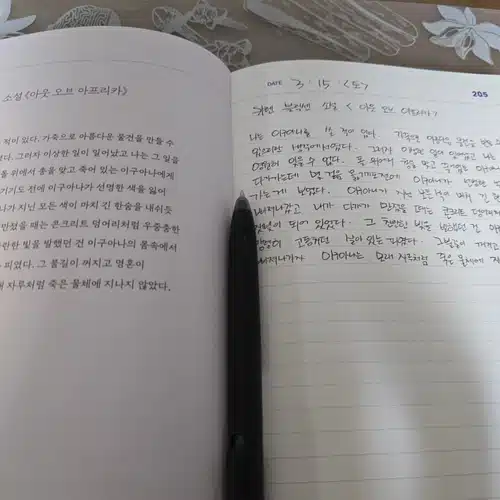 소설 《아웃 오브 아프리카》
적이 있다. 가죽으로 아름다운 물건을 만들 수
다. 그러자 이상한 일이 일어났고 나는 그 일을
돌 위에서 총을 맞고 죽어 있는 이구아나에게
기도 전에 이구아나가 선명한 색을 잃어
가 지닌 모든 색이 마치 긴 한숨을 내쉬듯
만졌을 때는 콘크리트 덩어리처럼 우중충한
란한 빛을 발했던 건 이구아나의 몸속에서
피였다. 그 불길이 꺼지고 영혼이
자루처럼 죽은 물체에 지나지 않았다.
DATE 3 · 15 · <토>
205
소설 < 아웃 오브 아프리카>
나는 이구아나를 쏜 적이 있다. 가죽으로 아름다운 물건을 만들 수
있으리란 생각에서였다. 그러자 이상한 일이 일어났고 나는
없었다. 돌 위에서 총을 맞고 죽어있는
다가가는데 몇 걸음 옮기기도전에 이구아나가 선명한
가는게 보였다. 이구아나가 지닌 모든색이 마치 긴 한
내가 다가가 만졌을 때는 콘크리트 덩어리
되어 있었다. 그 찬란한 빛을 발했던 건 이구
고동치던 살아 있는 피였다. 그 불길이 꺼지고
이구아나는 모래 자루처럼 죽은 물체에 지